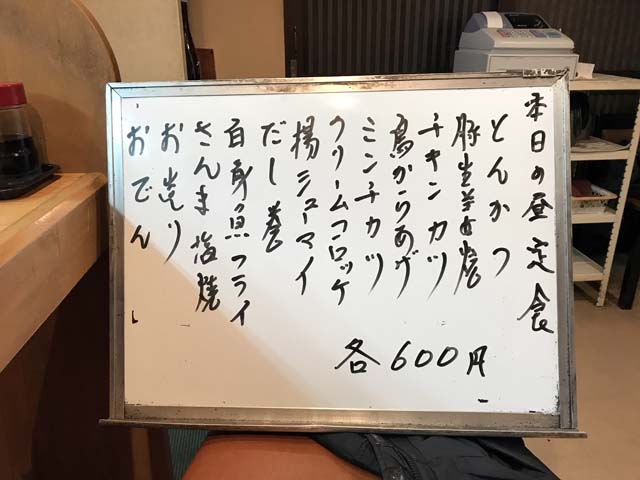 本日の昼定食
とんかつ
豚生姜焼
チキンカツ
鳥からあげ
ミンチカツ
クリームコロッケ
揚シューマイ
だし巻
白身魚フライ
さんま塩焼
お造り
おでん
各600円